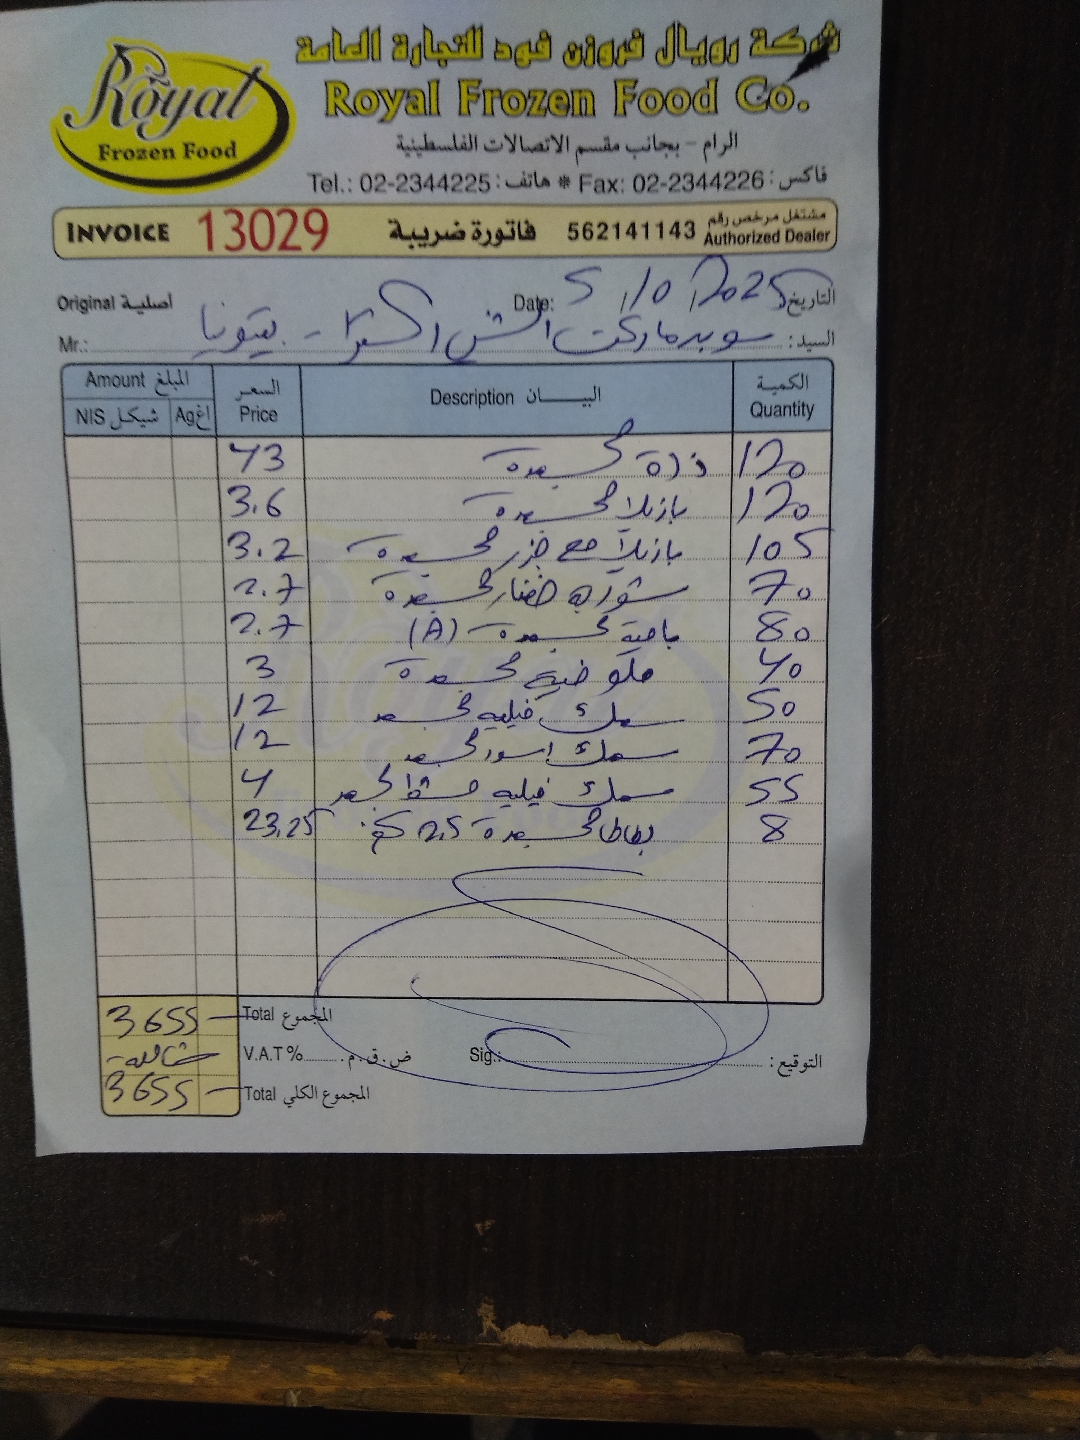 شركة رويال فروزن فود للتجارة العامة
Royal Frozen Food Co.
Royal
Frozen Food
الرام - بجانب مقسم الاتصالات الفلسطينية
Tel.: 02-2344225 : هاتف * Fax: 02-2344226 : فاكس
INVOICE 13029 فاتورة ضريبة 562141143 مشتغل مرخص رقم Authorized Dealer
Original أصلية Date: 5/10/2025 التاريخ
Mr.: السيد: سوبرماركت بيتونيا
Amount المبلغ السعر Price Description البيـــان الكمية Quantity
NIS شيكل Ag اغ
43 ذرة مجمدة 120
3.6 بازيلا مجمدة 120
3.2 بازيلا مع جزر مجمدة 105
2.7 شوربة خضار مجمدة 70
2.7 بامية مجمدة (A) 80
3 ملوخية مجمدة 40
12 سمك فيليه مجمد 50
12 سمك اسود مجمد 70
4 سمك فيليه مجمد 55
23.25 بطاطا مجمدة 2.5 كغ 8
3655 Total المجموع
شاملة V.A.T % ض.ق.م. Sig.: التوقيع:
3655 Total المجموع الكلي